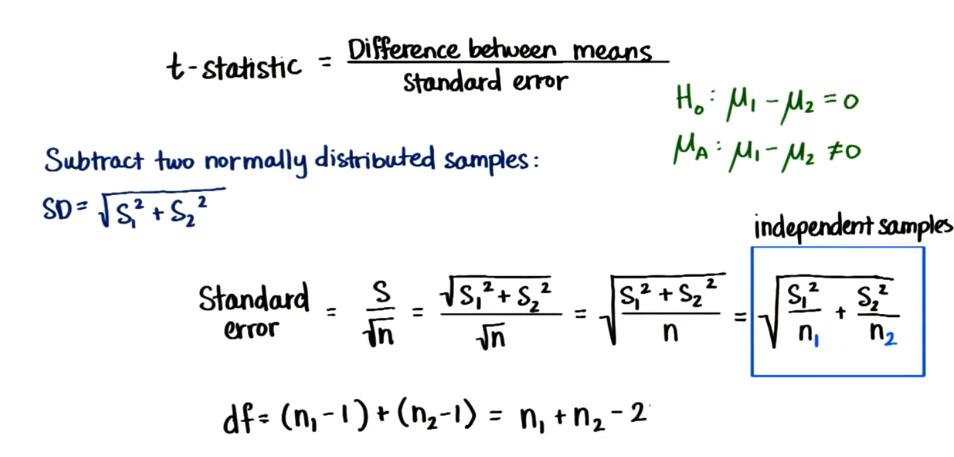 t-statistic = Difference between means / Standard error
H₀: μ₁ - μ₂ = 0
μA: μ₁ - μ₂ ≠ 0
Subtract two normally distributed samples:
SD = √(S₁² + S₂²)
independent samples
Standard error = S/√n = √(S₁² + S₂²)/√n = √((S₁² + S₂²)/n) = √(S₁²/n₁ + S₂²/n₂)
df = (n₁ - 1) + (n₂ - 1) = n₁ + n₂ - 2